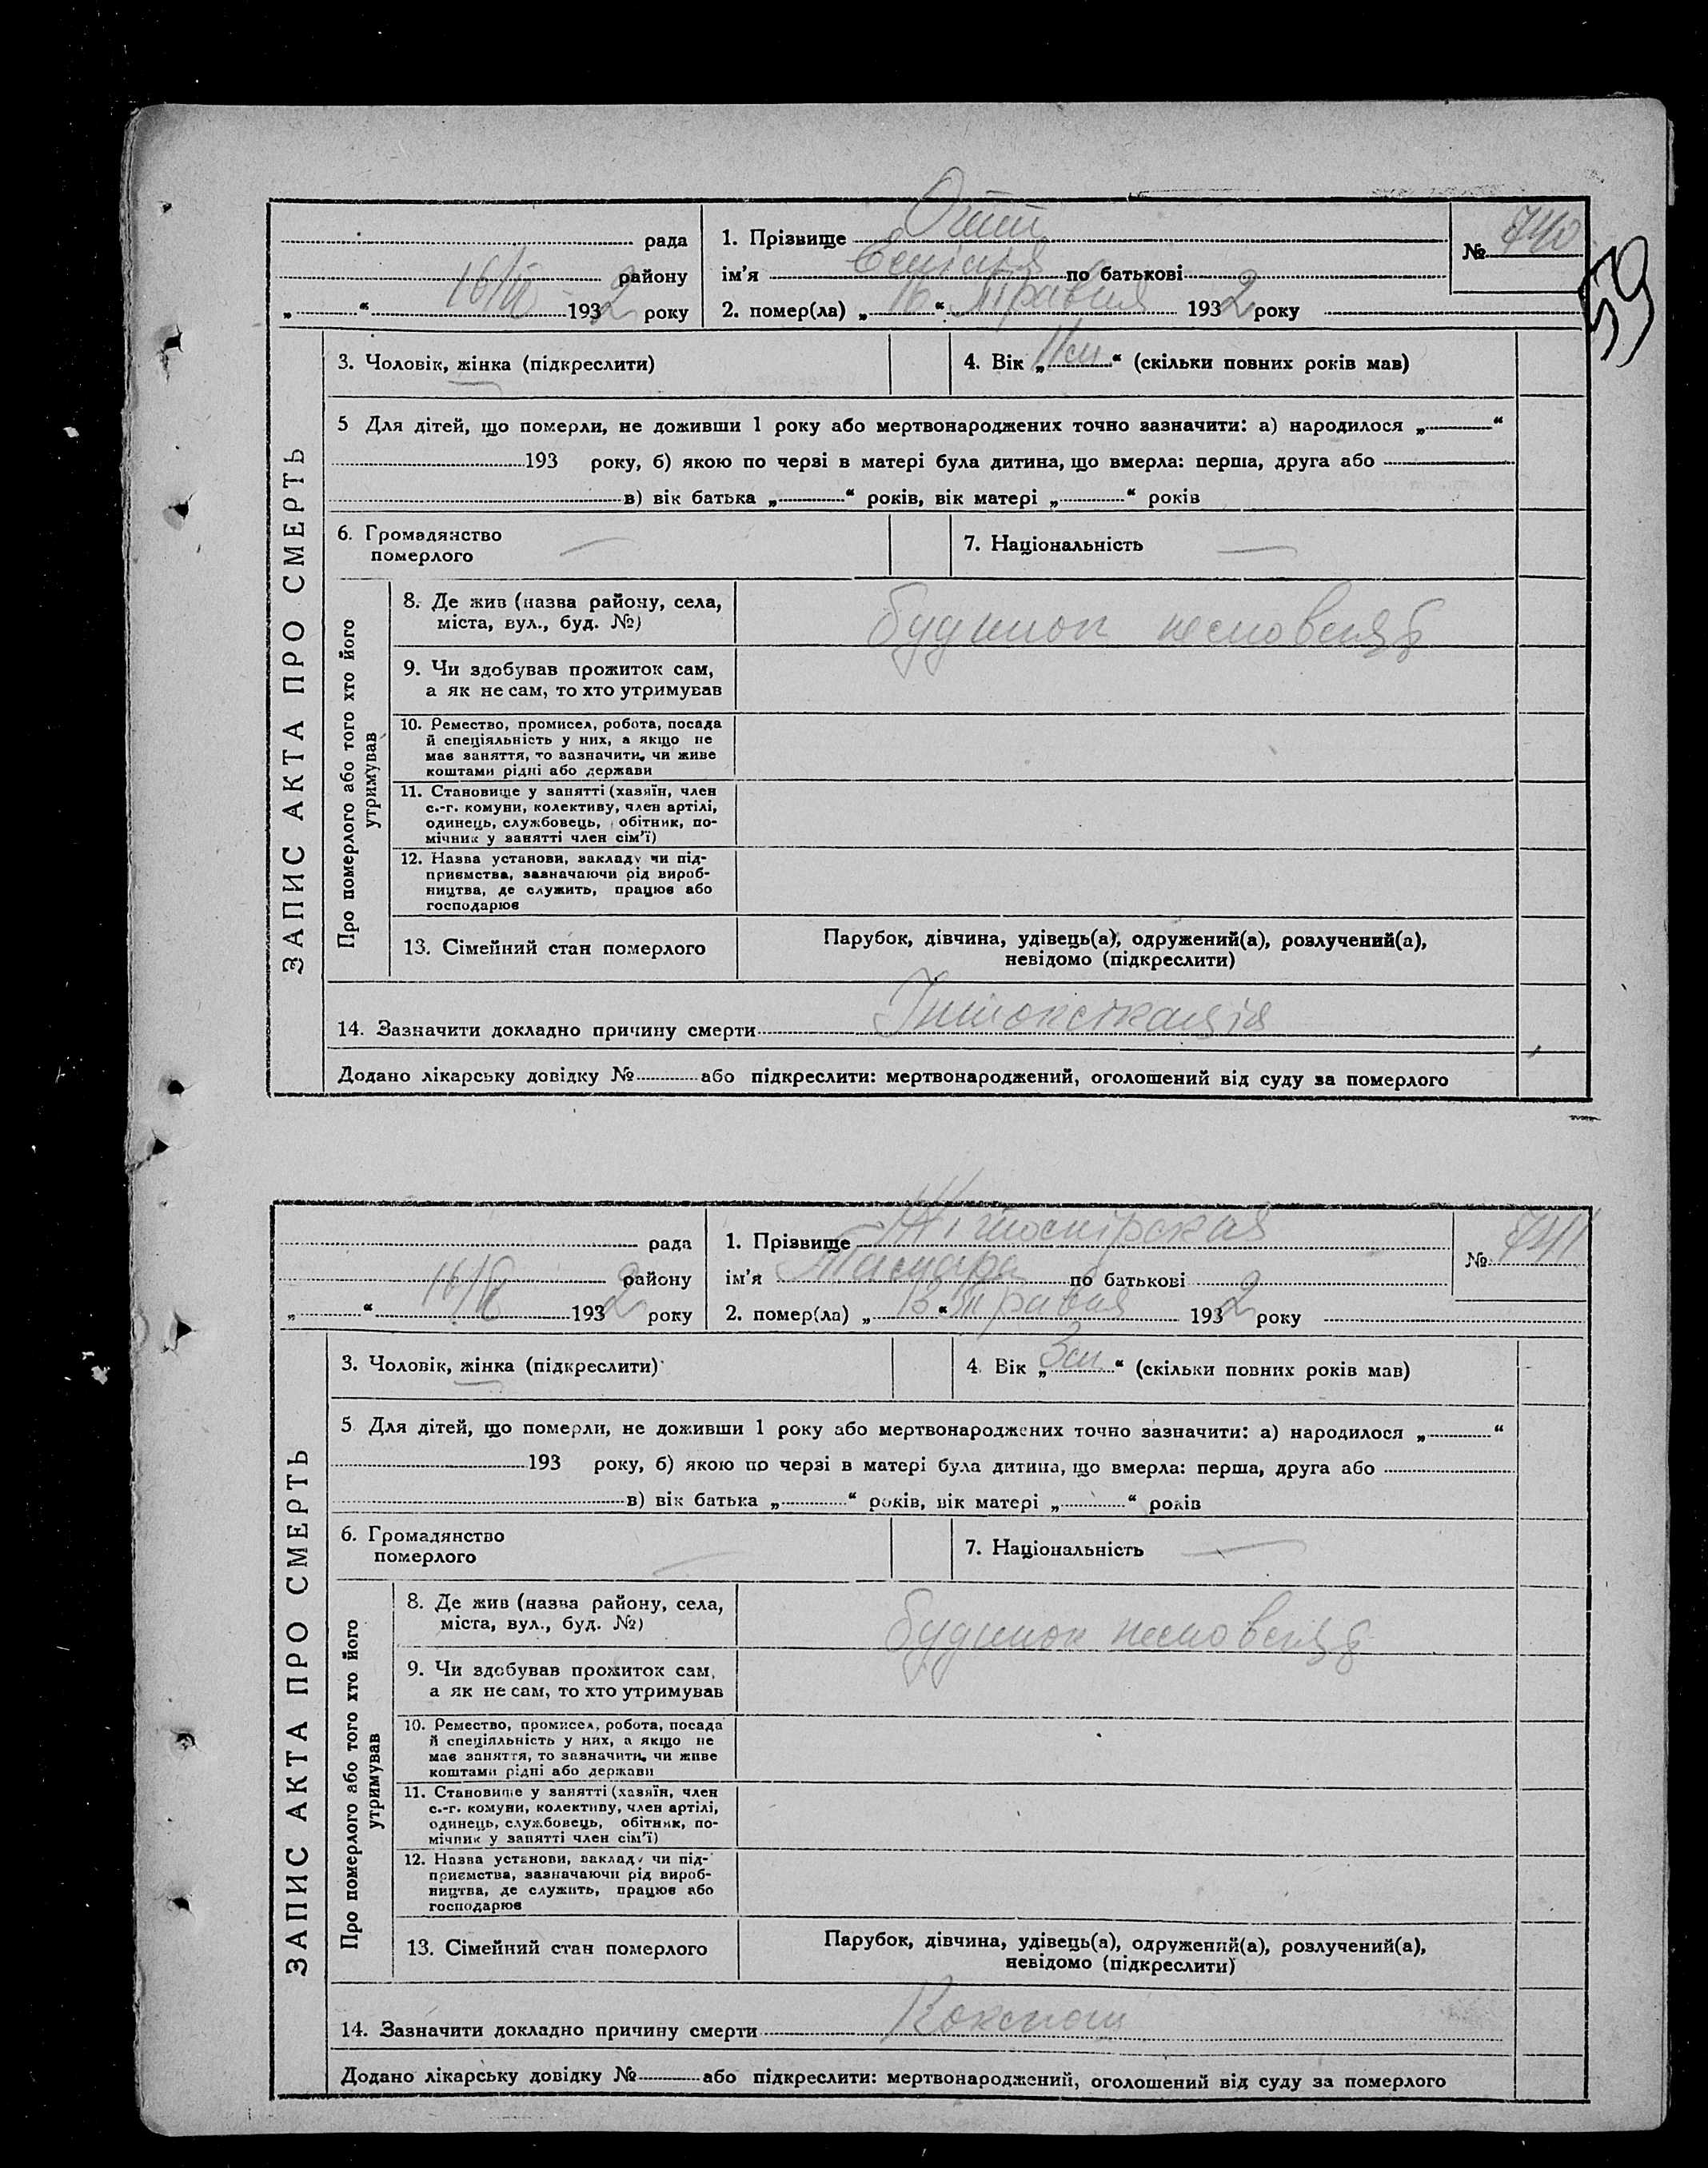 59
рада
району
16/V
„ “ 1932 року
1. Прізвище Отт
ім’я по батькові
2. помер(ла) „16“ Травня 1932 року
№ 740
ЗАПИС АКТА ПРО СМЕРТЬ
3. Чоловік, жінка (підкреслити)
4. Вік „11 м“ (скільки повних років мав)
5 Для дітей, що померли, не доживши 1 року або мертвонароджених точно зазначити: а) народилося „ “
193 року, б) якою по черзі в матері була дитина, що вмерла: перша, друга або
в) вік батька „ “ років, вік матері „ “ років
6. Громадянство
померлого —
7. Національність —
Про померлого або того хто його
утримував
8. Де жив (назва району, села,
міста, вул., буд. №)
будинок немовлят
9. Чи здобував прожиток сам,
а як не сам, то хто утримував
10. Ремество, промисел, робота, посада
й спеціяльність у них, а якщо не
має заняття, то зазначити, чи живе
коштами рідні або держави
11. Становище у занятті (хазяїн, член
с.-г. комуни, колективу, член артілі,
одинець, службовець, обітник, по-
мічник у занятті член сім’ї)
12. Назва установи, закладу чи під-
приємства, зазначаючи рід вироб-
ництва, де служить, працює або
господарює
13. Сімейний стан померлого
Парубок, дівчина, удівець(а), одружений(а), розлучений(а),
невідомо (підкреслити)
14. Зазначити докладно причину смерти Інтоксікація
Додано лікарську довідку № або підкреслити: мертвонароджений, оголошений від суду за померлого
рада
району
16/V
„ “ 1932 року
1. Прізвище
ім’я Тамара по батькові
2. помер(ла) „13“ Травня 1932 року
№ 741
ЗАПИС АКТА ПРО СМЕРТЬ
3. Чоловік, жінка (підкреслити)
4. Вік „3 м“ (скільки повних років мав)
5 Для дітей, що померли, не доживши 1 року або мертвонароджених точно зазначити: а) народилося „ “
193 року, б) якою по черзі в матері була дитина, що вмерла: перша, друга або
в) вік батька „ “ років, вік матері „ “ років
6. Громадянство
померлого —
7. Національність —
Про померлого або того хто його
утримував
8. Де жив (назва району, села,
міста, вул., буд. №)
будинок немовлят
9. Чи здобував прожиток сам,
а як не сам, то хто утримував
10. Ремество, промисел, робота, посада
й спеціяльність у них, а якщо не
має заняття, то зазначити, чи живе
коштами рідні або держави
11. Становище у занятті (хазяїн, член
с.-г. комуни, колективу, член артілі,
одинець, службовець, обітник, по-
мічник у занятті член сім’ї)
12. Назва установи, закладу чи під-
приємства, зазначаючи рід вироб-
ництва, де служить, працює або
господарює
13. Сімейний стан померлого
Парубок, дівчина, удівець(а), одружений(а), розлучений(а),
невідомо (підкреслити)
14. Зазначити докладно причину смерти
Додано лікарську довідку № або підкреслити: мертвонароджений, оголошений від суду за померлого